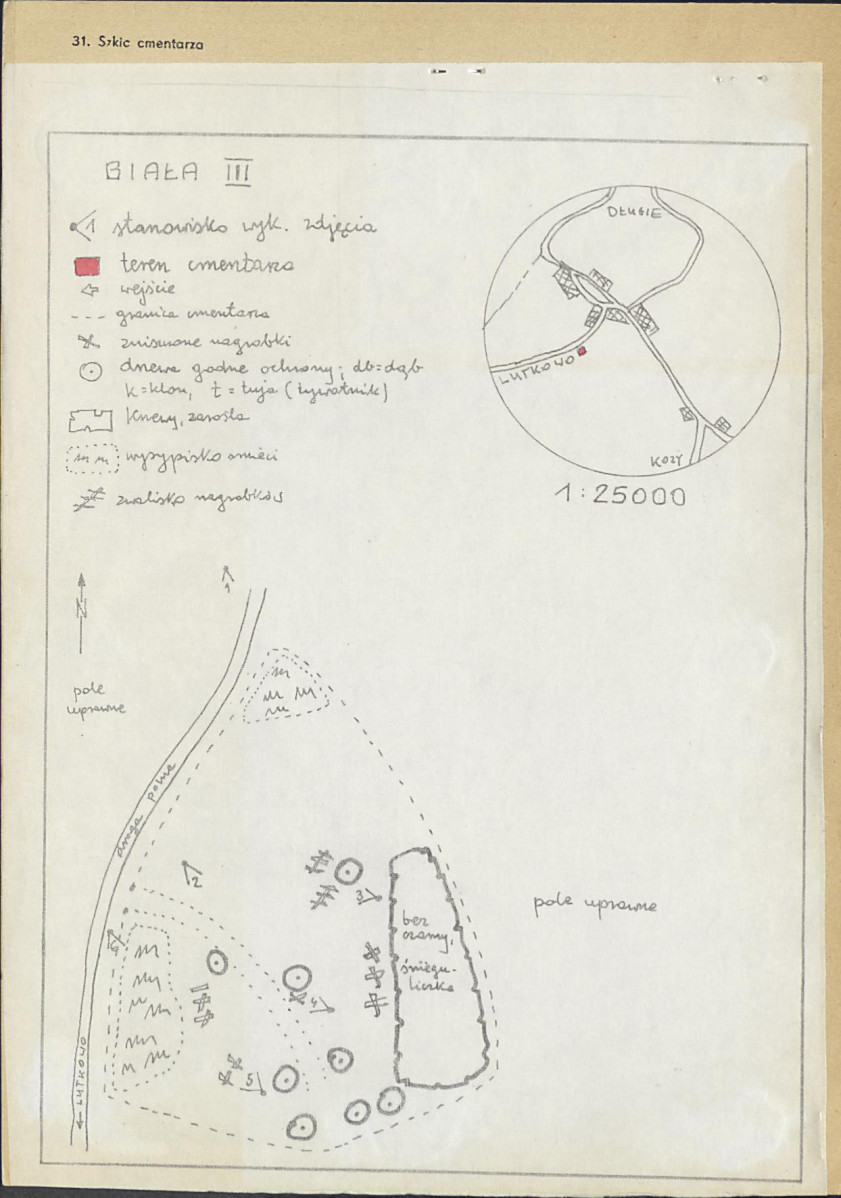 31. Szkic cmentarza
BIAŁA III
1 stanowisko wyk. zdjęcia
teren cmentarza
wejście
granica cmentarza
zniszczone nagrobki
drzewa godne ochrony; db=dąb
k=klon, t=tuja (żywotnik)
krzewy, zarośla
wysypisko śmieci
zwalisko nagrobków
DŁUGIE
LUTKOWO
KOZY
1:25000
N
1
pole
uprawne
droga polna
2
3
bez
czarny,
śniegu-
liczka
pole uprawne
4
5
LUTKOWO